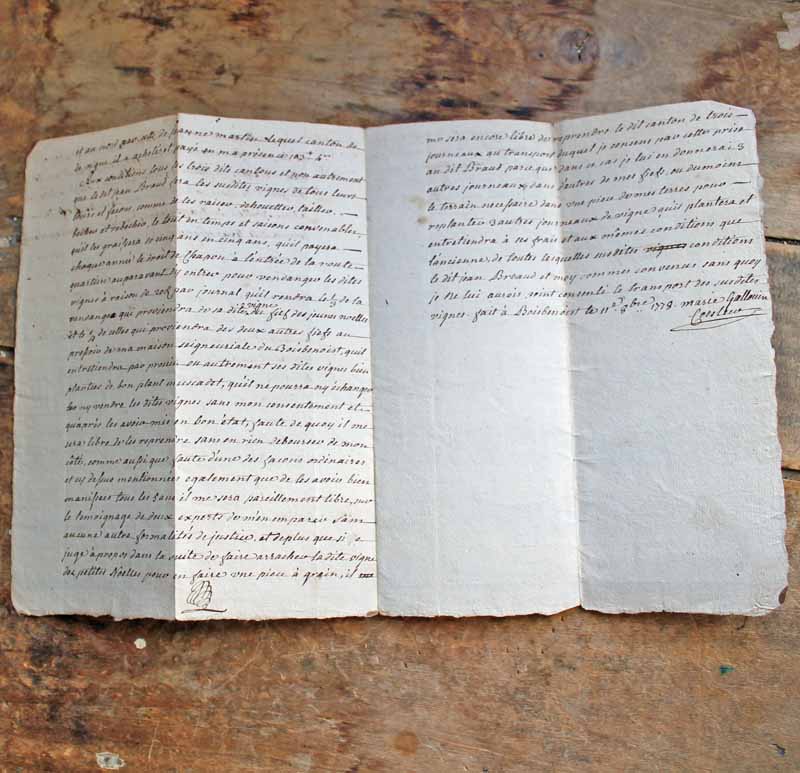 et au nord par celle de jeanne martin lequel canton de
vigne il a acheté et payé en ma présence
Aux conditions sous les trois dits cantons et non autrement
que le dit jean Braud fera les susdites vignes de toutes leurs
tours et façons, comme de les raiser, dehouetter, tailler
becher et rebecher, le tout en temps et saisons convenables,
quil les graissera de cinq ans en cinq ans, quil payera
chaque année le droit de Chapon à l'entrée de la route
quartin auparavant dy entrer pour vendanger les dites
vignes à raison de par journal quil rendra le de la
vendange qui proviendra de sa dite vigne du fief des jeunes noelles
et de celles qui proviendra des deux autres fiefs au
pressoir de ma maison seigneuriale du Boisbenoist, quil
entretiendra par provins ou autrement ses dites vignes bien
plantées de bon plant muscadet, qu'il ne pourra ny échanger
ny vendre les dites vignes sans mon consentement et
qu'après les avoir mis en bon état, faute de quoy il me
sera libre de les reprendre sans en rien debourser de mon
côté, comme aussi que faute d'une des façons ordinaires
et cy dessus mentionnées également que de les avoir bien
manisées tous les 5 ans il me sera pareillement libre, sur
le temoignage de deux experts de m'en emparer sans
aucune autre formalités de justice, et de plus que si je
juge à propos dans la suite de faire arracher la dite vigne
des petites Noelles pour en faire une piece à grain, il
me sera encore libre de reprendre le dit canton de trois
journeaux au transport duquel je consens par cette prise
au dit Braud parce que dans ce cas je lui en donnerai 3
autres journeaux dans d'autres de mes fiefs ou du moins
le terrain nécessaire dans une piece de mes terres pour
replanter 3 autres journeaux de vigne qu'il plantera et
entretiendra à ses frais et aux mêmes conditions que
l'ancienne, de toutes lesquelles susdites vignes conditions
le dit jean Breaud et moy sommes convenus sans quoy
je ne lui aurois point consenti le transport des susdites
vignes. fait à Boisbenoist le 11e 8bre 1778. marie Gallouin